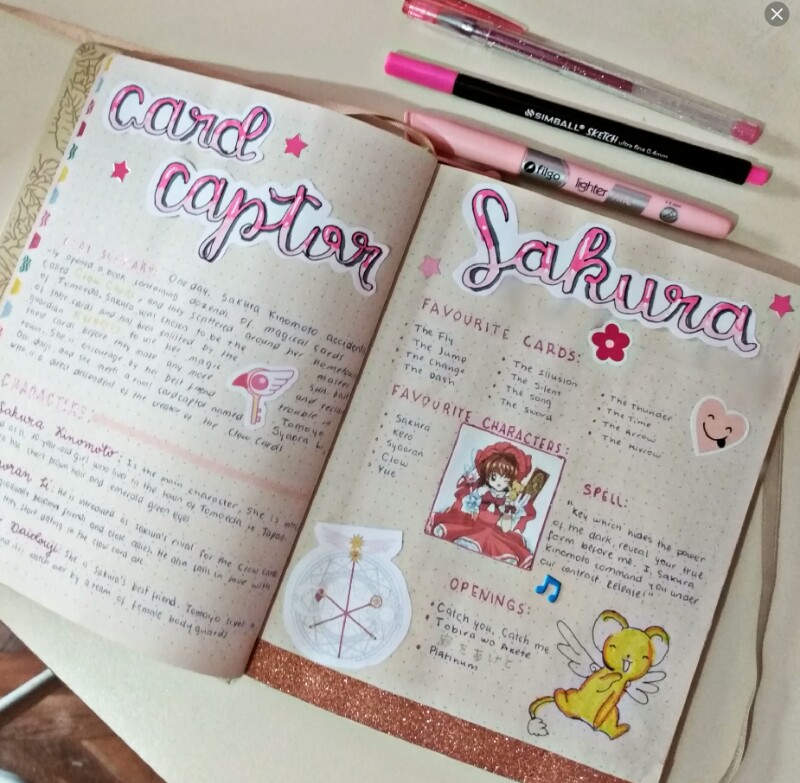 card
captor
One day, Sakura Kinomoto accidentally
opened a book containing dozens of magical cards
called Clow Cards, and they scattered around her hometown
of Tomoeda. Sakura was chosen to be the
of the cards and has been enlisted by the
guardian to use her magic and
these cards before they make any more trouble in
town. She is encourage by her best friend Tomoyo
Daidouji, and she meets a rival cardcaptor named Syaoran Li,
who is a distant descendant of the creator of the Clow Cards
CHARACTERS:
Sakura Kinomoto: Is the main character, she is
10 year old girl who live in the town of Tomoeda in Japan.
short brown hair and emerald green eyes
He is introduced as Sakura's rival for the Clow cards
friend, and close allies. He also falls in love with
start dating in the clow card arc
Daidouji: She is Sakura's best friend. Tomoyo
watch over by a team of female bodyguards
Sakura
FAVOURITE CARDS:
• The Fly
• The Jump
• The Change
• The Dash
• The Illusion
• The Silent
• The Song
• The Sword
• The Thunder
• The Time
• The Arrow
• The Mirror
FAVOURITE CHARACTERS:
• Sakura
• Kero
• Syaoran
• Clow
• Yue
SPELL:
"Key which hides the power
of the dark, reveal your true
form before me. I, Sakura
Kinomoto command you under
our contract. Release!"
OPENINGS:
• Catch you, Catch me
• Tobira wo Akete
• Platinum
SIMBALL® SKETCH ultra fine 0.4mm
filgo lighter